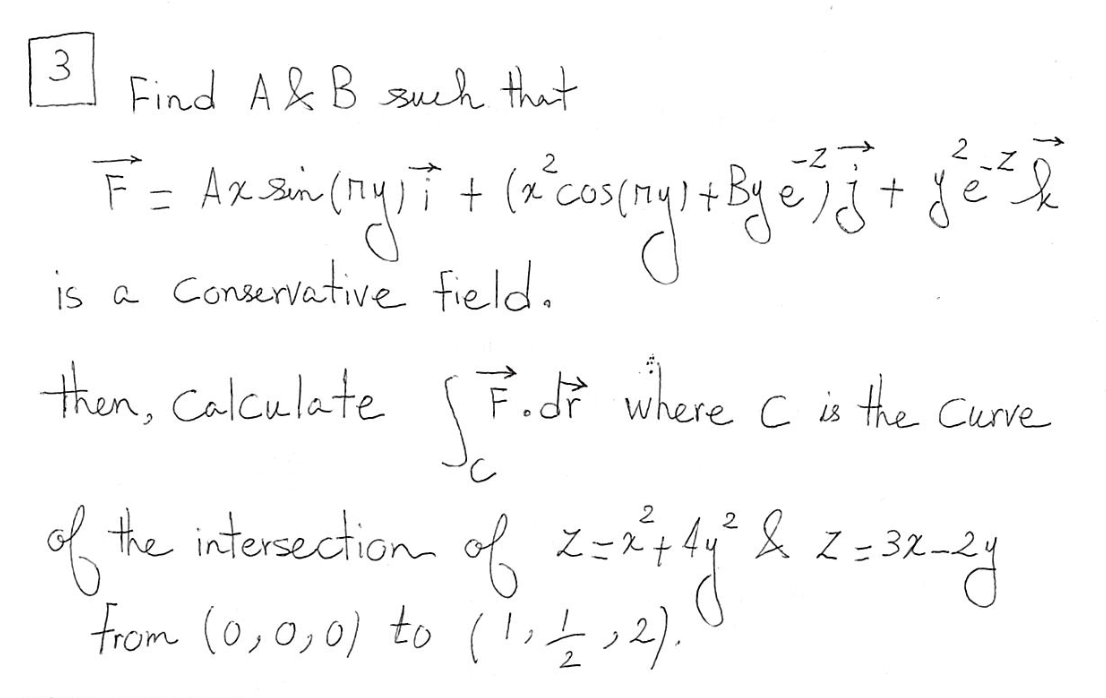 3 Find A & B such that
F⃗ = Ax sin(πy) i⃗ + (x² cos(πy) + By e^{-z}) j⃗ + y² e^{-z} k⃗
is a conservative field.
then, calculate ∫_C F⃗ . dr⃗ where C is the curve
of the intersection of z = x² + 4y² & z = 3x - 2y
from (0, 0, 0) to (1, 1/2, 2).